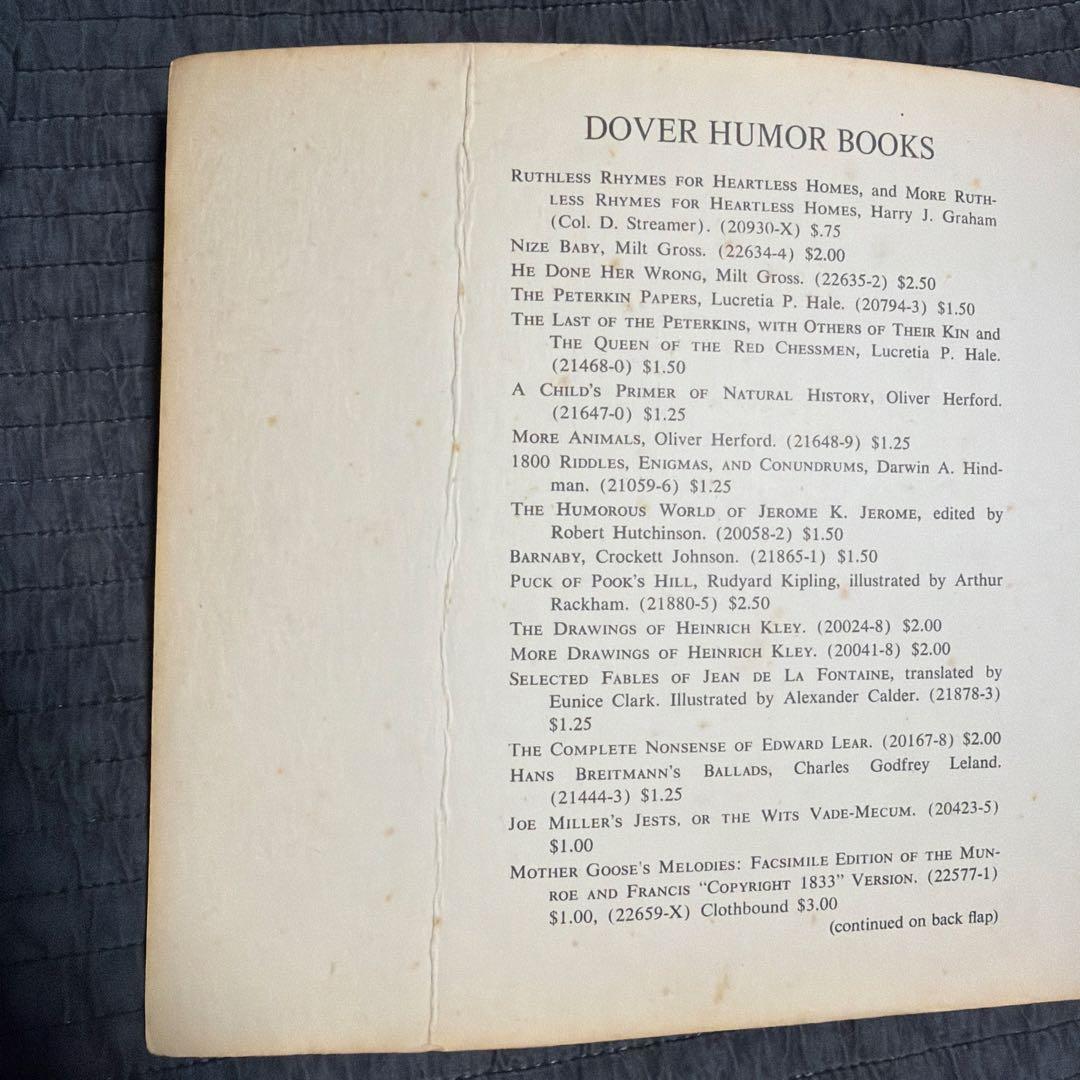 DOVER HUMOR BOOKS
RUTHLESS RHYMES FOR HEARTLESS HOMES, and MORE RUTH-
LESS RHYMES FOR HEARTLESS HOMES, Harry J. Graham
(Col. D. Streamer). (20930-X) $.75
NIZE BABY, Milt Gross. (22634-4) $2.00
HE DONE HER WRONG, Milt Gross. (22635-2) $2.50
THE PETERKIN PAPERS, Lucretia P. Hale. (20794-3) $1.50
THE LAST OF THE PETERKINS, WITH OTHERS OF THEIR KIN and
THE QUEEN OF THE RED CHESSMEN, Lucretia P. Hale.
(21468-0) $1.50
A CHILD'S PRIMER OF NATURAL HISTORY, Oliver Herford.
(21647-0) $1.25
MORE ANIMALS, Oliver Herford. (21648-9) $1.25
1800 RIDDLES, ENIGMAS, AND CONUNDRUMS, Darwin A. Hind-
man. (21059-6) $1.25
THE HUMOROUS WORLD OF JEROME K. JEROME, edited by
Robert Hutchinson. (20058-2) $1.50
BARNABY, Crockett Johnson. (21865-1) $1.50
PUCK OF POOK'S HILL, Rudyard Kipling, illustrated by Arthur
Rackham. (21880-5) $2.50
THE DRAWINGS OF HEINRICH KLEY. (20024-8) $2.00
MORE DRAWINGS OF HEINRICH KLEY. (20041-8) $2.00
SELECTED FABLES OF JEAN DE LA FONTAINE, translated by
Eunice Clark. Illustrated by Alexander Calder. (21878-3)
$1.25
THE COMPLETE NONSENSE OF EDWARD LEAR. (20167-8) $2.00
HANS BREITMANN'S BALLADS, Charles Godfrey Leland.
(21444-3) $1.25
JOE MILLER'S JESTS, OR THE WITS VADE-MECUM. (20423-5)
$1.00
MOTHER GOOSE'S MELODIES: FACSIMILE EDITION OF THE MUN-
ROE AND FRANCIS "COPYRIGHT 1833" VERSION. (22577-1)
$1.00, (22659-X) Clothbound $3.00
(continued on back flap)